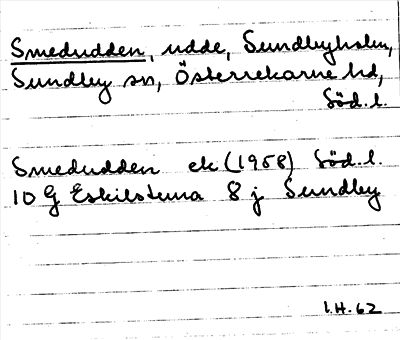 Smedudden, udde, Sundbyholm,
Sundby sn, Österrekarne hd,
Söd.l.
Smedudden ek (1958) Söd.l.
10 G Eskilstuna 8 j Sundby
I.H. 62